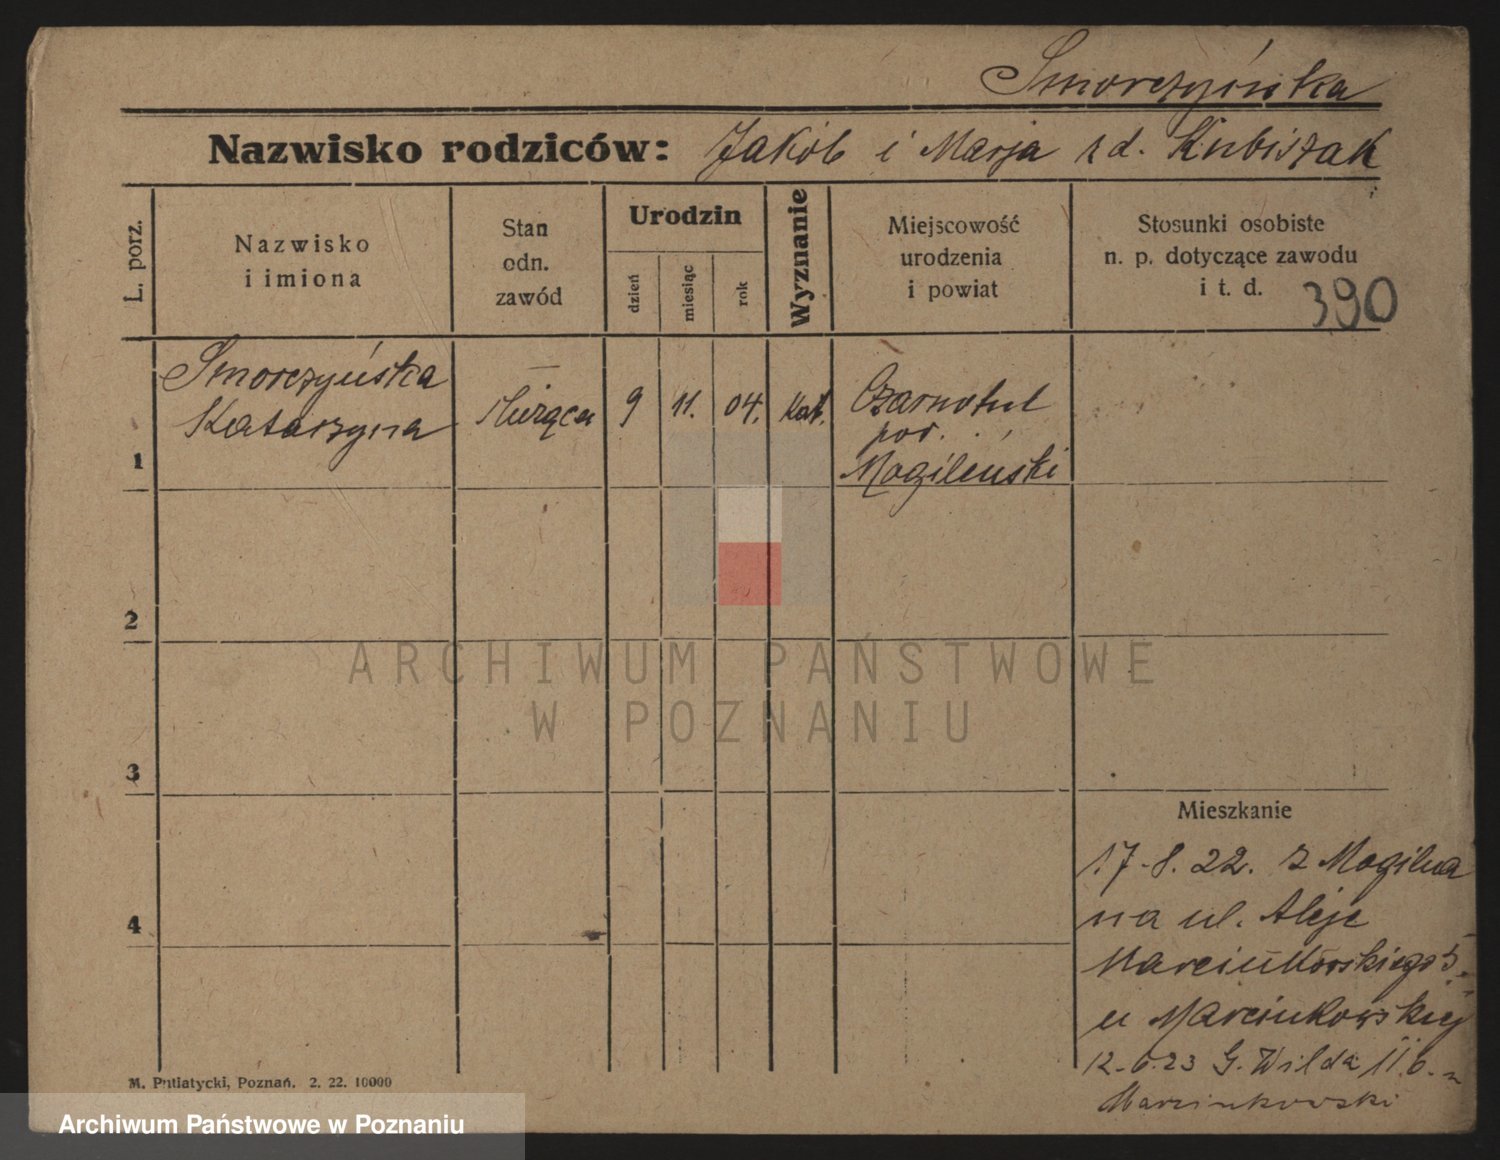 Smorczyńska
Nazwisko rodziców: Jakób i Marja z d. Kubiszak
L. porz.
Nazwisko
i imiona
Stan
odn.
zawód
Urodzin
dzień
miesiąc
rok
Wyznanie
Miejscowość
urodzenia
i powiat
Stosunki osobiste
n. p. dotyczące zawodu
i t. d.
390
1
Smorczyńska
Katarzyna
służąca
9
11.
04.
kat.
Czarnotul
pow.
Mogileński
2
3
4
ARCHIWUM PAŃSTWOWE
W POZNANIU
Mieszkanie
17.8.22. z Mogilna
na ul. Aleje
Marcinkowskiego 5
u Marcinkowskiej
12.6.23 G. Wilda 11
Marcinkowski
M. Putiatycki, Poznań. 2. 22. 10000
Archiwum Państwowe w Poznaniu